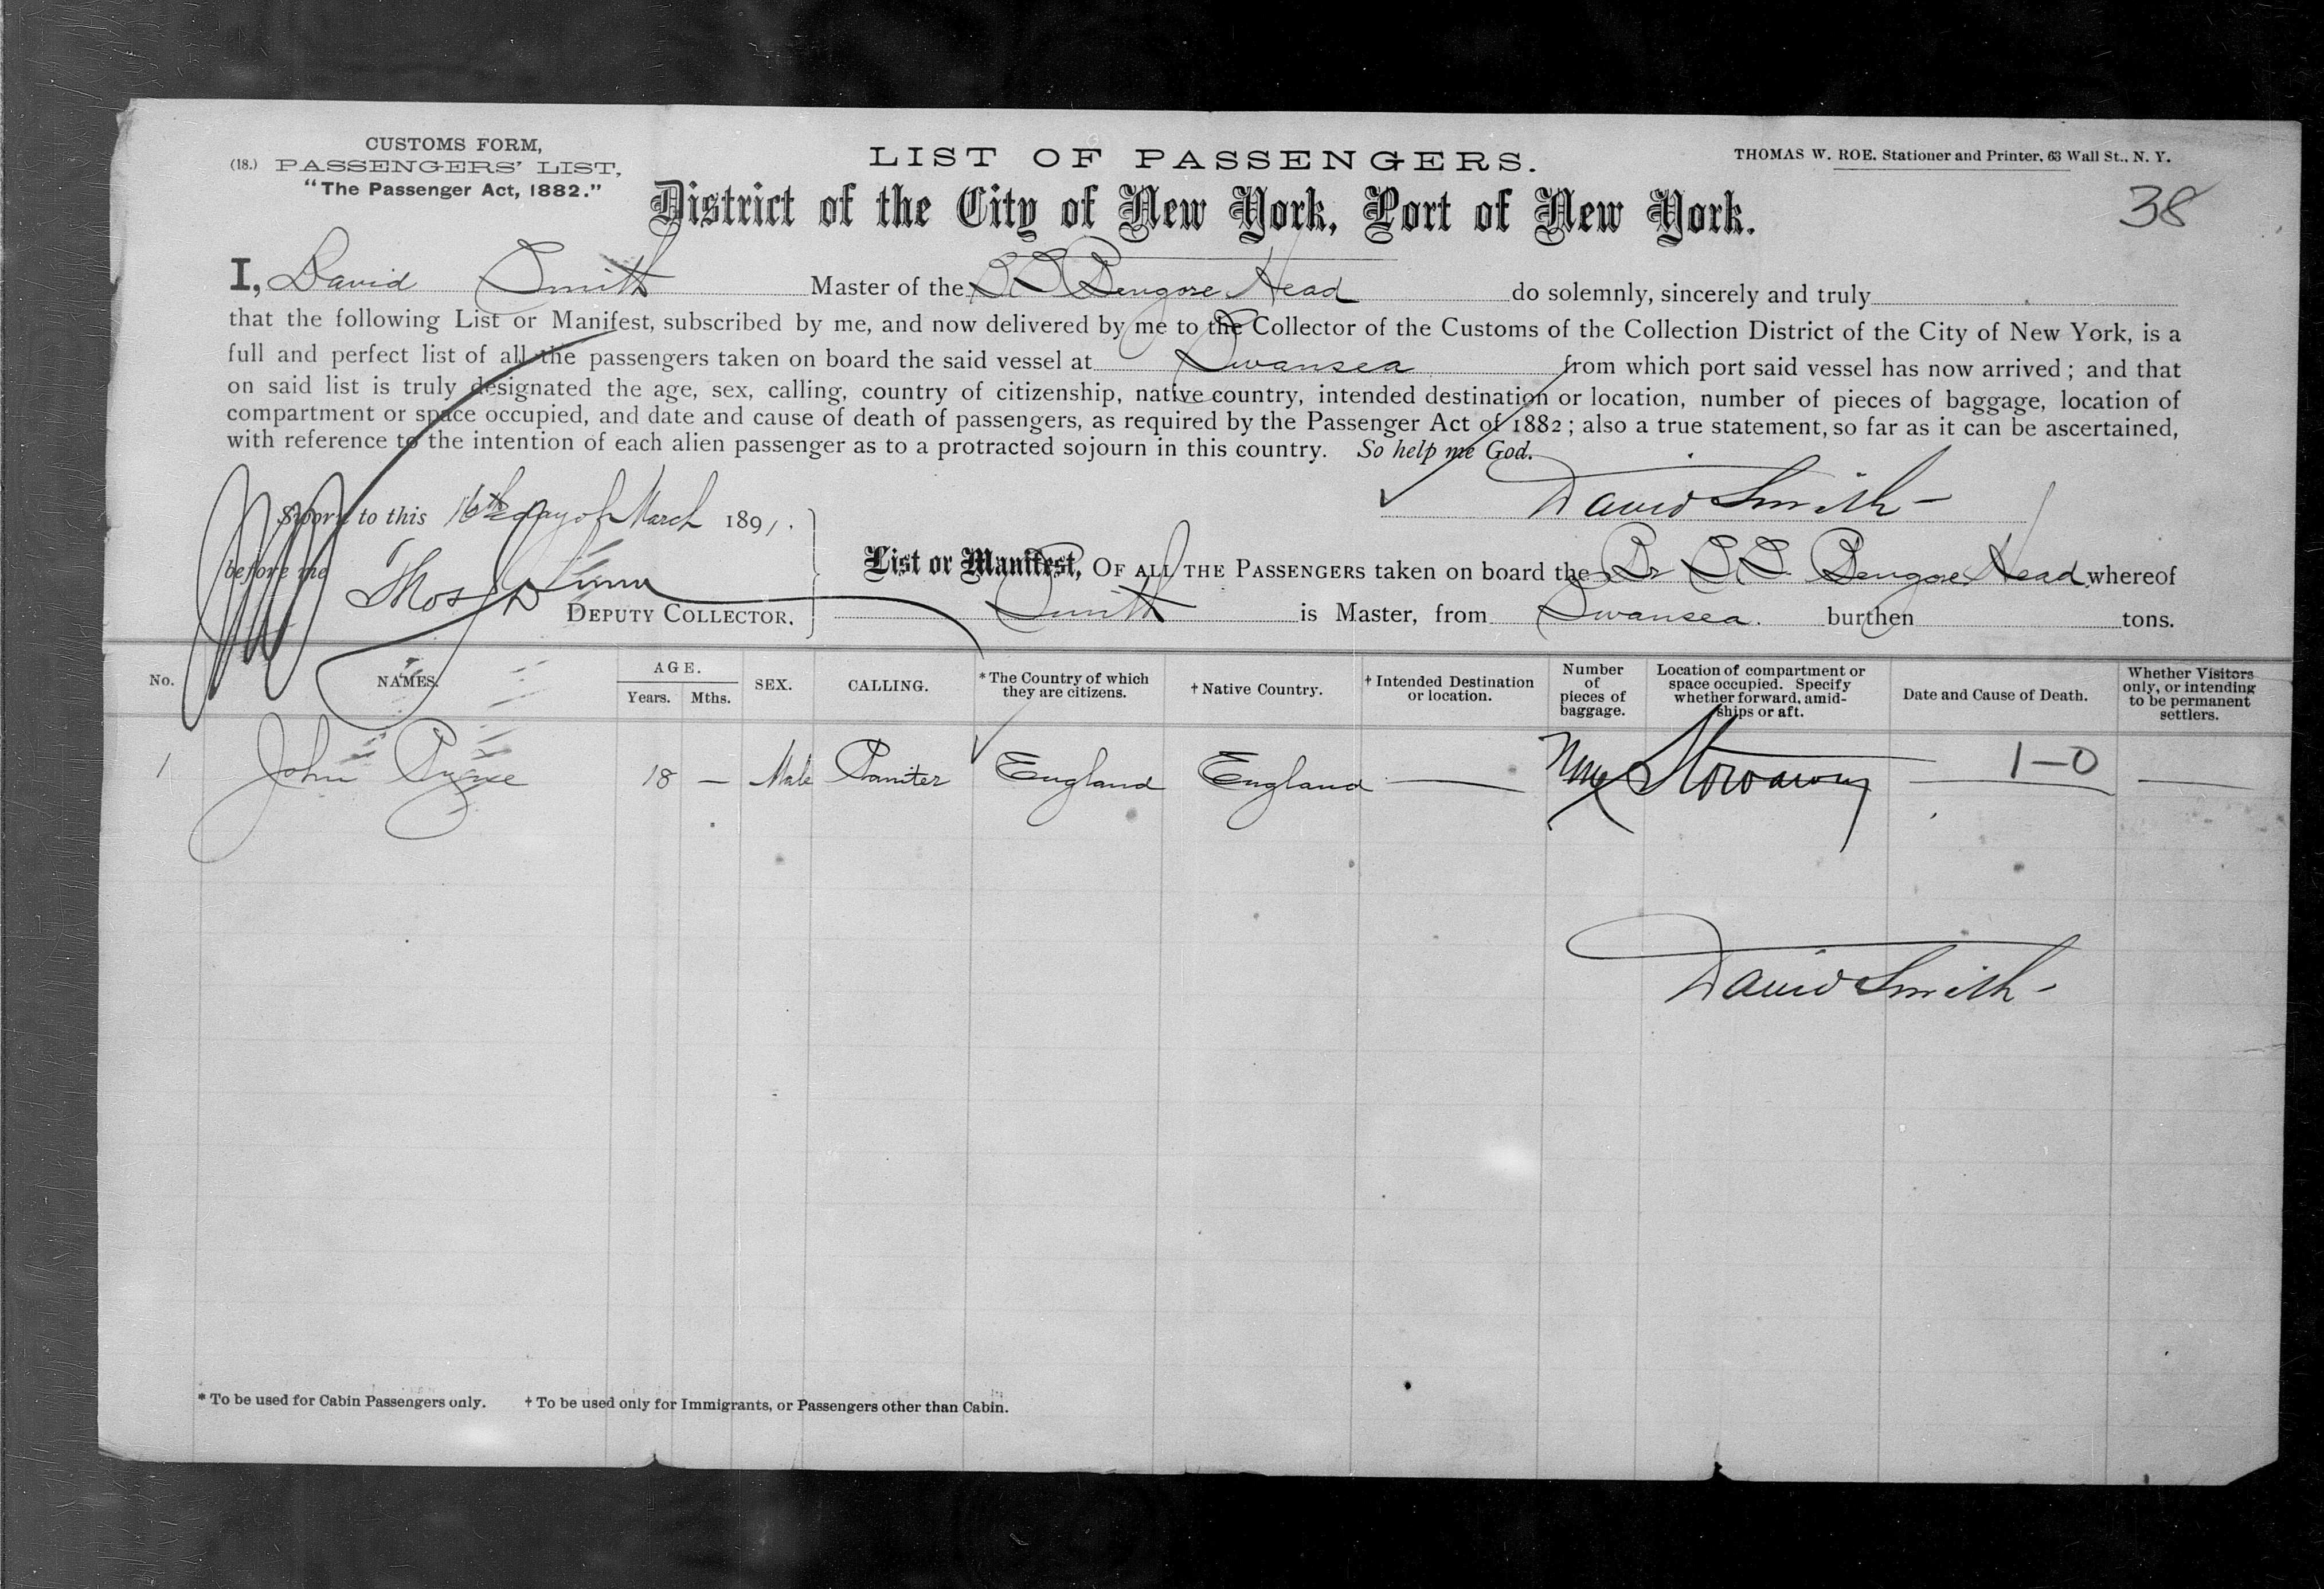 CUSTOMS FORM,
(18.) PASSENGERS' LIST,
"The Passenger Act, 1882."
LIST OF PASSENGERS.
THOMAS W. ROE. Stationer and Printer, 63 Wall St., N. Y.
District of the City of New York, Port of New York.
38
I, David Smith Master of the SS Bengore Head do solemnly, sincerely and truly
that the following List or Manifest, subscribed by me, and now delivered by me to the Collector of the Customs of the Collection District of the City of New York, is a
full and perfect list of all the passengers taken on board the said vessel at Swansea from which port said vessel has now arrived; and that
on said list is truly designated the age, sex, calling, country of citizenship, native country, intended destination or location, number of pieces of baggage, location of
compartment or space occupied, and date and cause of death of passengers, as required by the Passenger Act of 1882; also a true statement, so far as it can be ascertained,
with reference to the intention of each alien passenger as to a protracted sojourn in this country. So help me God.
David Smith
Sworn to this 16th day of March 1891.
before me Thos
DEPUTY COLLECTOR.
List or Manifest, OF ALL THE PASSENGERS taken on board the Br S.S. Bengore Head whereof
Smith is Master, from Swansea. burthen tons.
No. NAMES. AGE. Years. Mths. SEX. CALLING. *The Country of which they are citizens. †Native Country. †Intended Destination or location. Number of pieces of baggage. Location of compartment or space occupied. Specify whether forward, amidships or aft. Date and Cause of Death. Whether Visitors only, or intending to be permanent settlers.
1 John 18 — Male Painter England England — None Stowaway — 1-0 —
David Smith
* To be used for Cabin Passengers only. † To be used only for Immigrants, or Passengers other than Cabin.